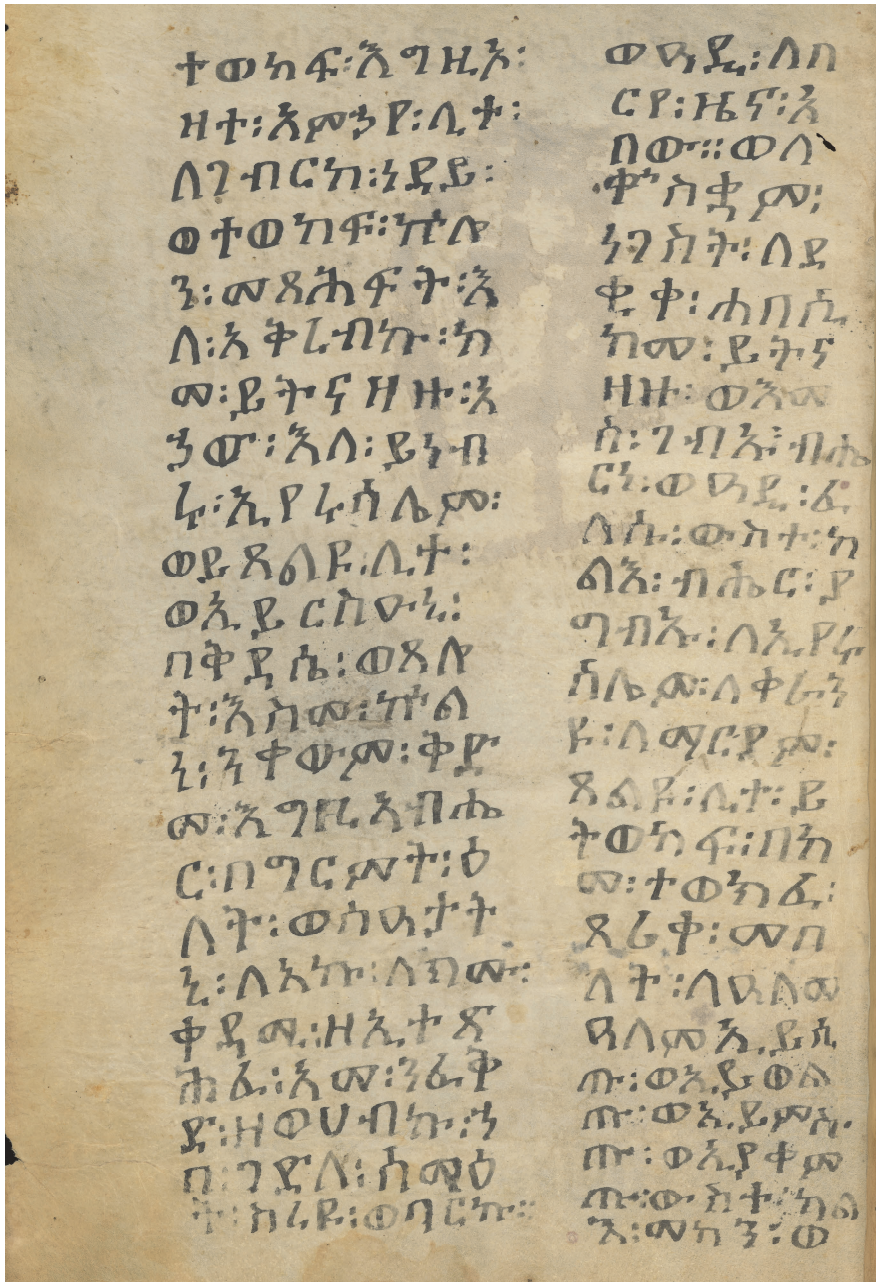 ተወክፍ፡እግዚኦ፡
ዛተ፡እምኃየ፡ሊተ፡
ለገብርከ፡ነዳይ፡
ወተወከፍ፡ኵሎ
ን፡መጸሕፍተ፡እ
ለ፡አቅረብኩ፡ከ
መ፡ይትናዘዙ፡አ
ኃው፡እለ፡ይነብ
ሩ፡ኢየሩሳሌም፡
ወይጸልዩ፡ሊተ፡
ወኢይርስዑኒ፡
በቅዳሴ፡ወጸሎ
ት፡እስመ፡ኵል
ነ፡ንቀውም፡ቅድ
መ፡እግዚአብሔ
ር፡በግርመት፡ዕ
ለት፡ወሰዓታት
ኒ፡ለእኩ፡ለክሙ፡
ቀዳሚ፡ዘኢተጽ
ሕፈ፡አመ፡ንፈቅ
ድ፡ዘወሀብኩ፡ኀ
በ፡ገድለ፡ሰማዕ
ት፡ስሬዩ፡ወባርኩ፡፡
ወዓዲ፡ለበ
ርየ፡ዜና፡አ
በው፡፡ወለ
ቍስቋም፡
ነገስት፡ለደ
ቂቀ፡ሐበሲ
ከመ፡ይትና
ዘዙ፡ወእመ
ሰ፡ገብኡ፡ብሔ
ርነ፡ወዓዲ፡ፈ
ለሱ፡ውስተ፡ካ
ልእ፡ብሔር፡ያ
ግብኡ፡ለኢየሩ
ሳሌም፡ለቀራን
ዩ፡ለማርያም፡
ጸልዩ፡ሊተ፡ይ
ትወከፍ፡በከ
መ፡ተወክፈ፡
ጸሪቀ፡መበ
ለት፡ለዓለመ
ዓለም፡ኢይሲ
ጡ፡ወኢይወል
ጡ፡ወኢይምስ
ጡ፡ወኢያቀም
ጡ፡ውስተ፡ካል
እ፡መካን፡ወ